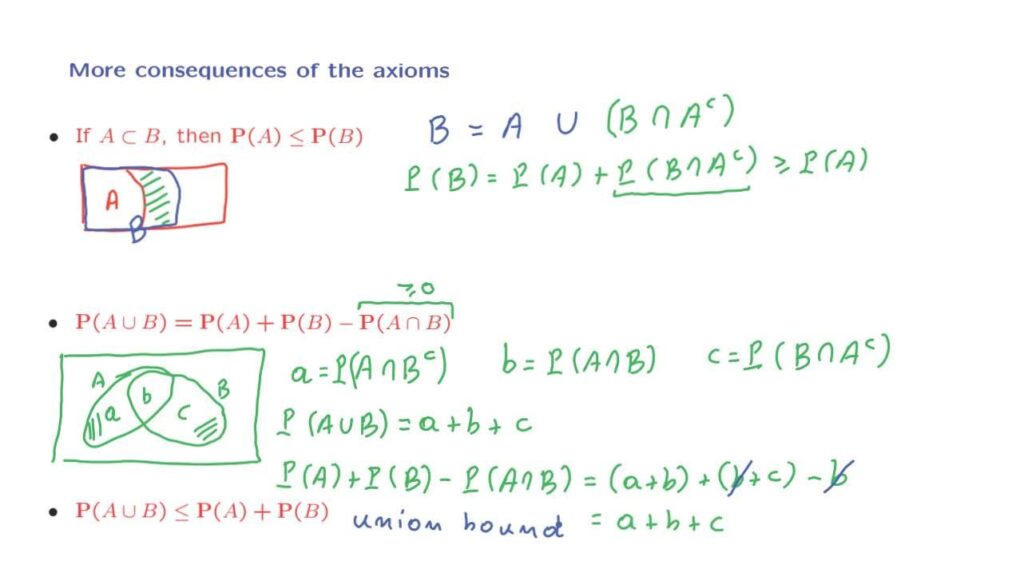 More consequences of the axioms
• If A ⊂ B, then P(A) ≤ P(B)
B = A ∪ (B ∩ Aᶜ)
P(B) = P(A) + P(B ∩ Aᶜ) ≥ P(A)
A
B
≥0
• P(A ∪ B) = P(A) + P(B) − P(A ∩ B)
A
B
a
b
c
a = P(A ∩ Bᶜ) b = P(A ∩ B) c = P(B ∩ Aᶜ)
P(A ∪ B) = a + b + c
P(A) + P(B) − P(A ∩ B) = (a + b) + (b + c) − b
• P(A ∪ B) ≤ P(A) + P(B) union bound = a + b + c